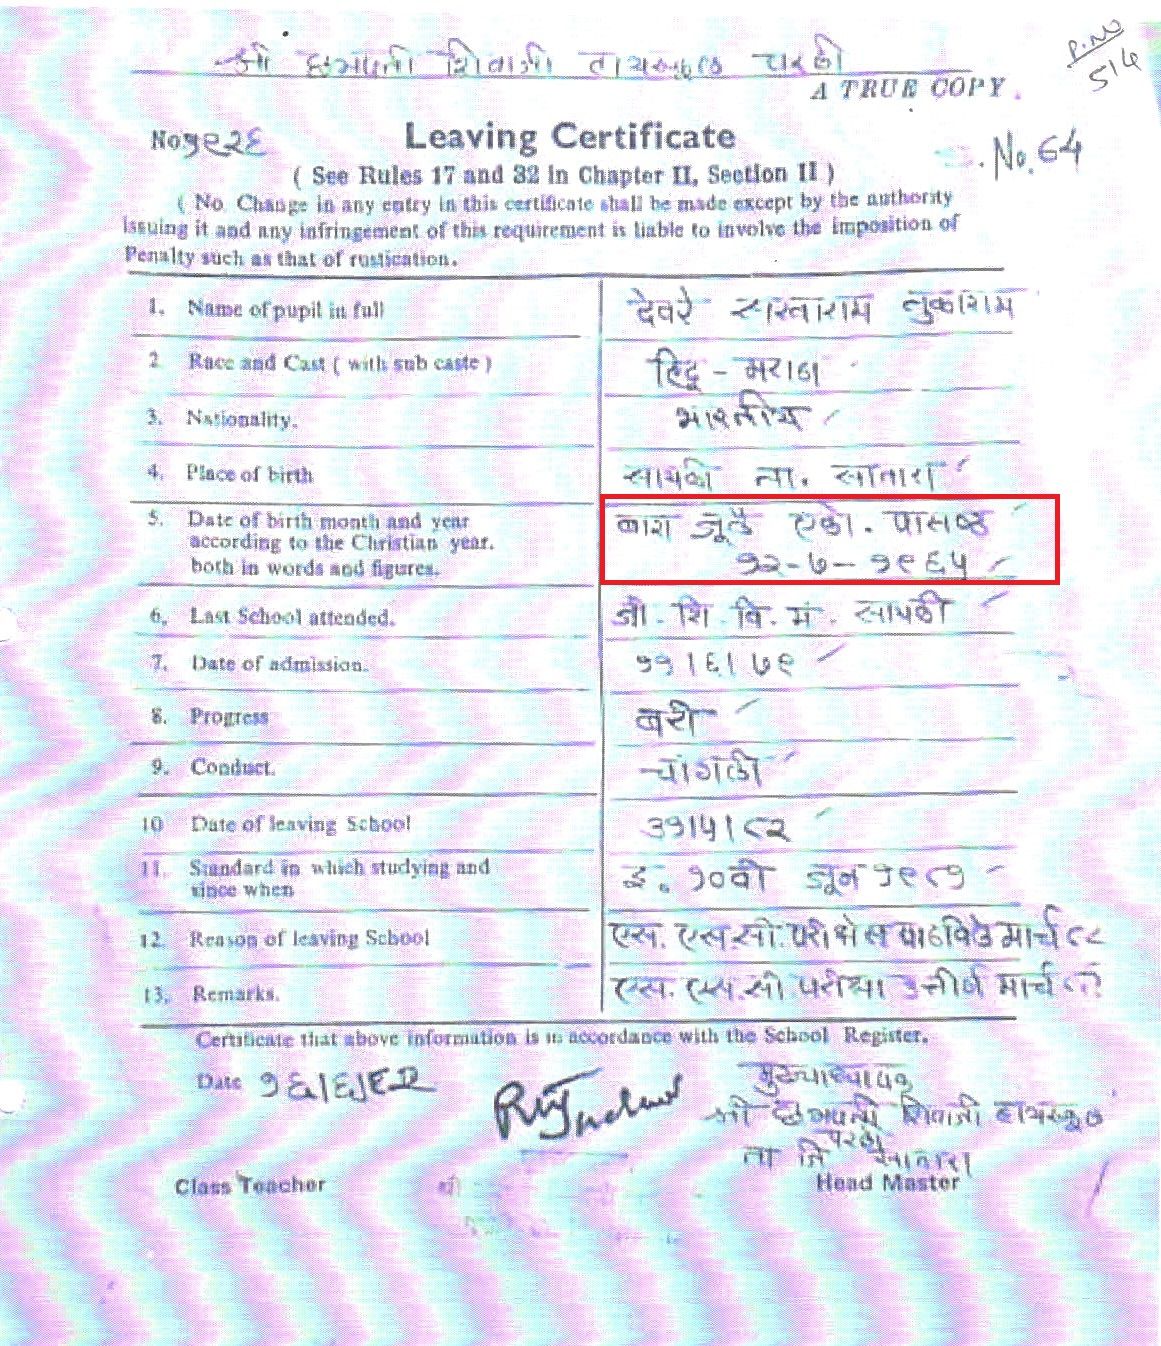 श्री छत्रपती शिवाजी हायस्कूल परळी
A TRUE COPY.
P.NO
514
No १९२६
Leaving Certificate
No. 64
( See Rules 17 and 32 in Chapter II, Section II )
( No. Change in any entry in this certificate shall be made except by the authority
issuing it and any infringement of this requirement is liable to involve the imposition of
Penalty such as that of rustication.
1. Name of pupil in full देवरे सखाराम तुकाराम
2 Race and Cast ( with sub caste ) हिंदू - मराठा
3. Nationality. भारतीय
4. Place of birth सायळी ता. सातारा
5. Date of birth month and year बारा जूलै एको. पासष्ठ
according to the Christian year.
both in words and figures. १२-७-१९६५
6. Last School attended. जी. शि. वि. मं. सायळी
7. Date of admission. ११।६।७९
8. Progress बरी
9. Conduct. चांगली
10 Date of leaving School ३१।५।८२
11. Standard in which studying and इ. १०वी जून १९८१
since when
12. Reason of leaving School एस. एस. सी. परीक्षेस पाठविले मार्च ८२
13. Remarks. एस. एस. सी. परीक्षा उत्तीर्ण मार्च
Certificate that above information is in accordance with the School Register.
Date १६।६।८२
मुख्याध्यापक
श्री छत्रपती शिवाजी हायस्कूल
परळी
ता जि सातारा
Class Teacher Head Master